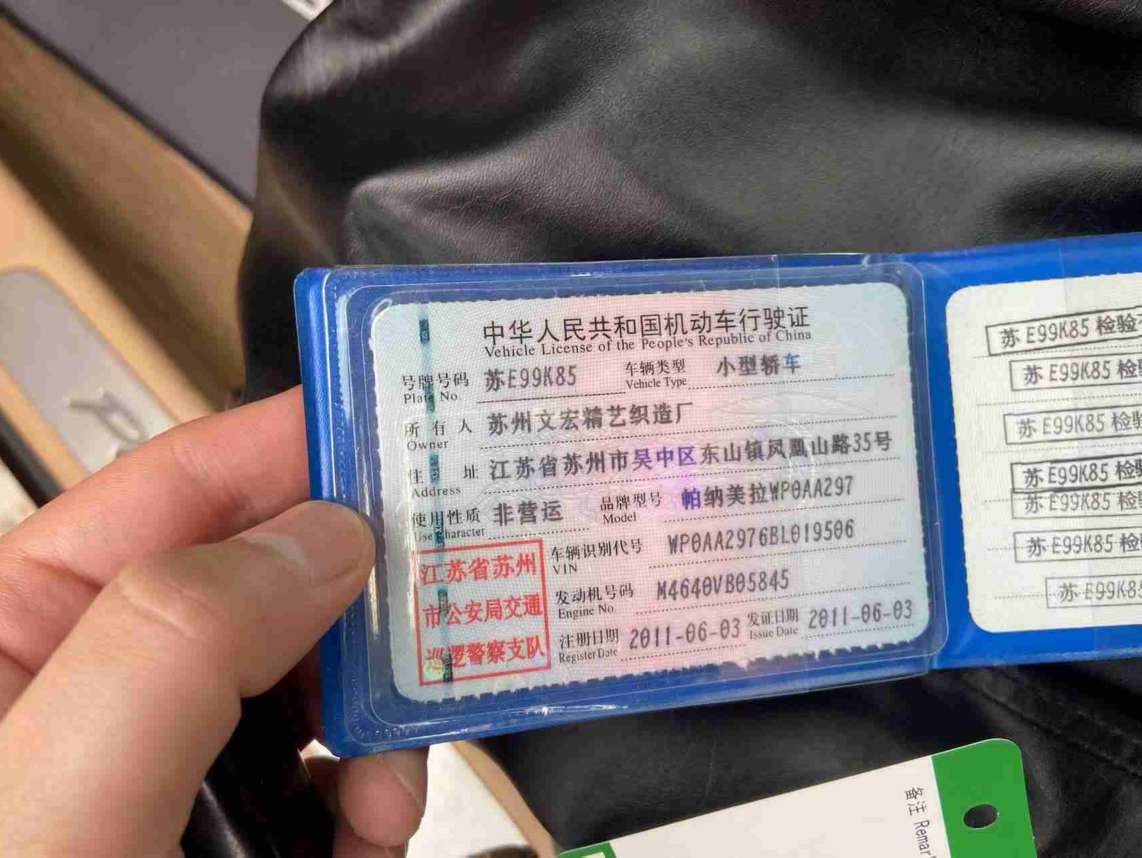 中华人民共和国机动车行驶证
Vehicle License of the People's Republic of China
号牌号码 苏E99K85 车辆类型 小型轿车
Plate No. Vehicle Type
所有人 苏州文宏精艺织造厂
Owner
住址 江苏省苏州市吴中区东山镇凤凰山路35号
Address
使用性质 非营运 品牌型号 帕纳美拉WP0AA297
Use Character Model
车辆识别代号 WP0AA2976BL019506
VIN
发动机号码 M4640VB05845
Engine No.
注册日期 2011-06-03 发证日期 2011-06-03
Register Date Issue Date
江苏省苏州
市公安局交通
巡逻警察支队
苏E99K85 检验
苏E99K85 检验
苏E99K85 检验
苏E99K85 检验
苏E99K85 检验
苏E99K85 检验
苏E99K85
备注